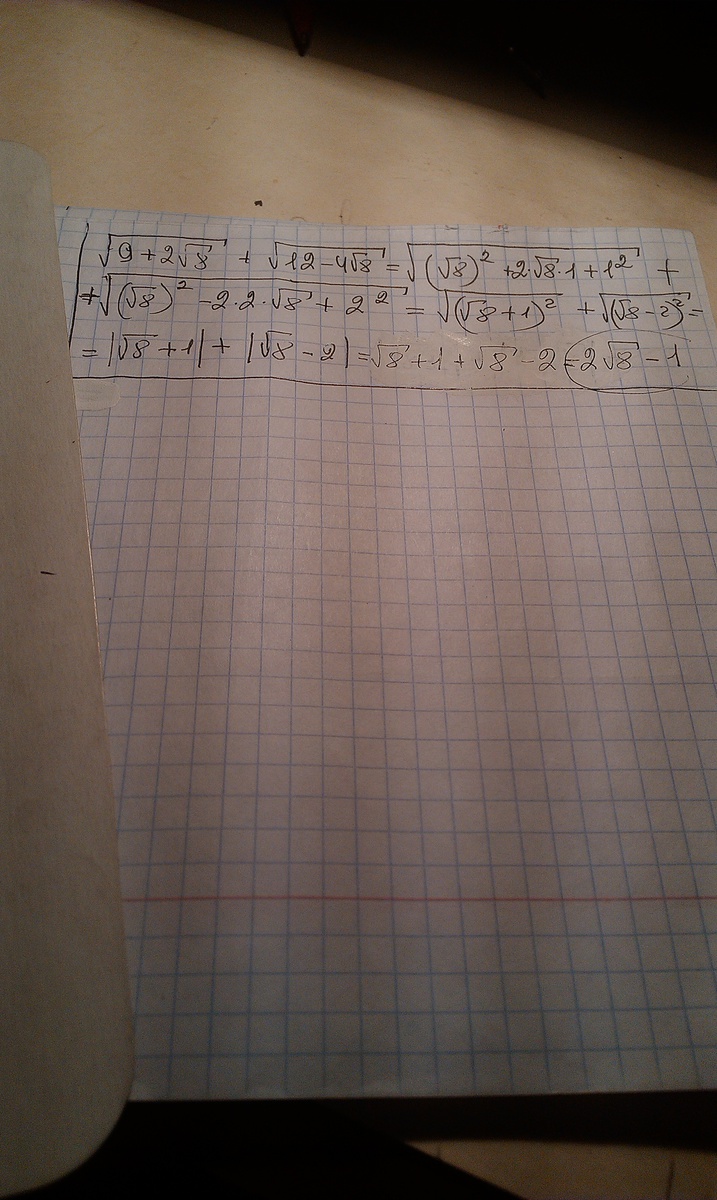 √(9 + 2√8) + √(12 - 4√8) = √((√8)² + 2·√8·1 + 1²) +
+ √((√8)² - 2·2·√8 + 2²) = √((√8 + 1)²) + √((√8 - 2)²) =
= |√8 + 1| + |√8 - 2| = √8 + 1 + √8 - 2 = 2√8 - 1